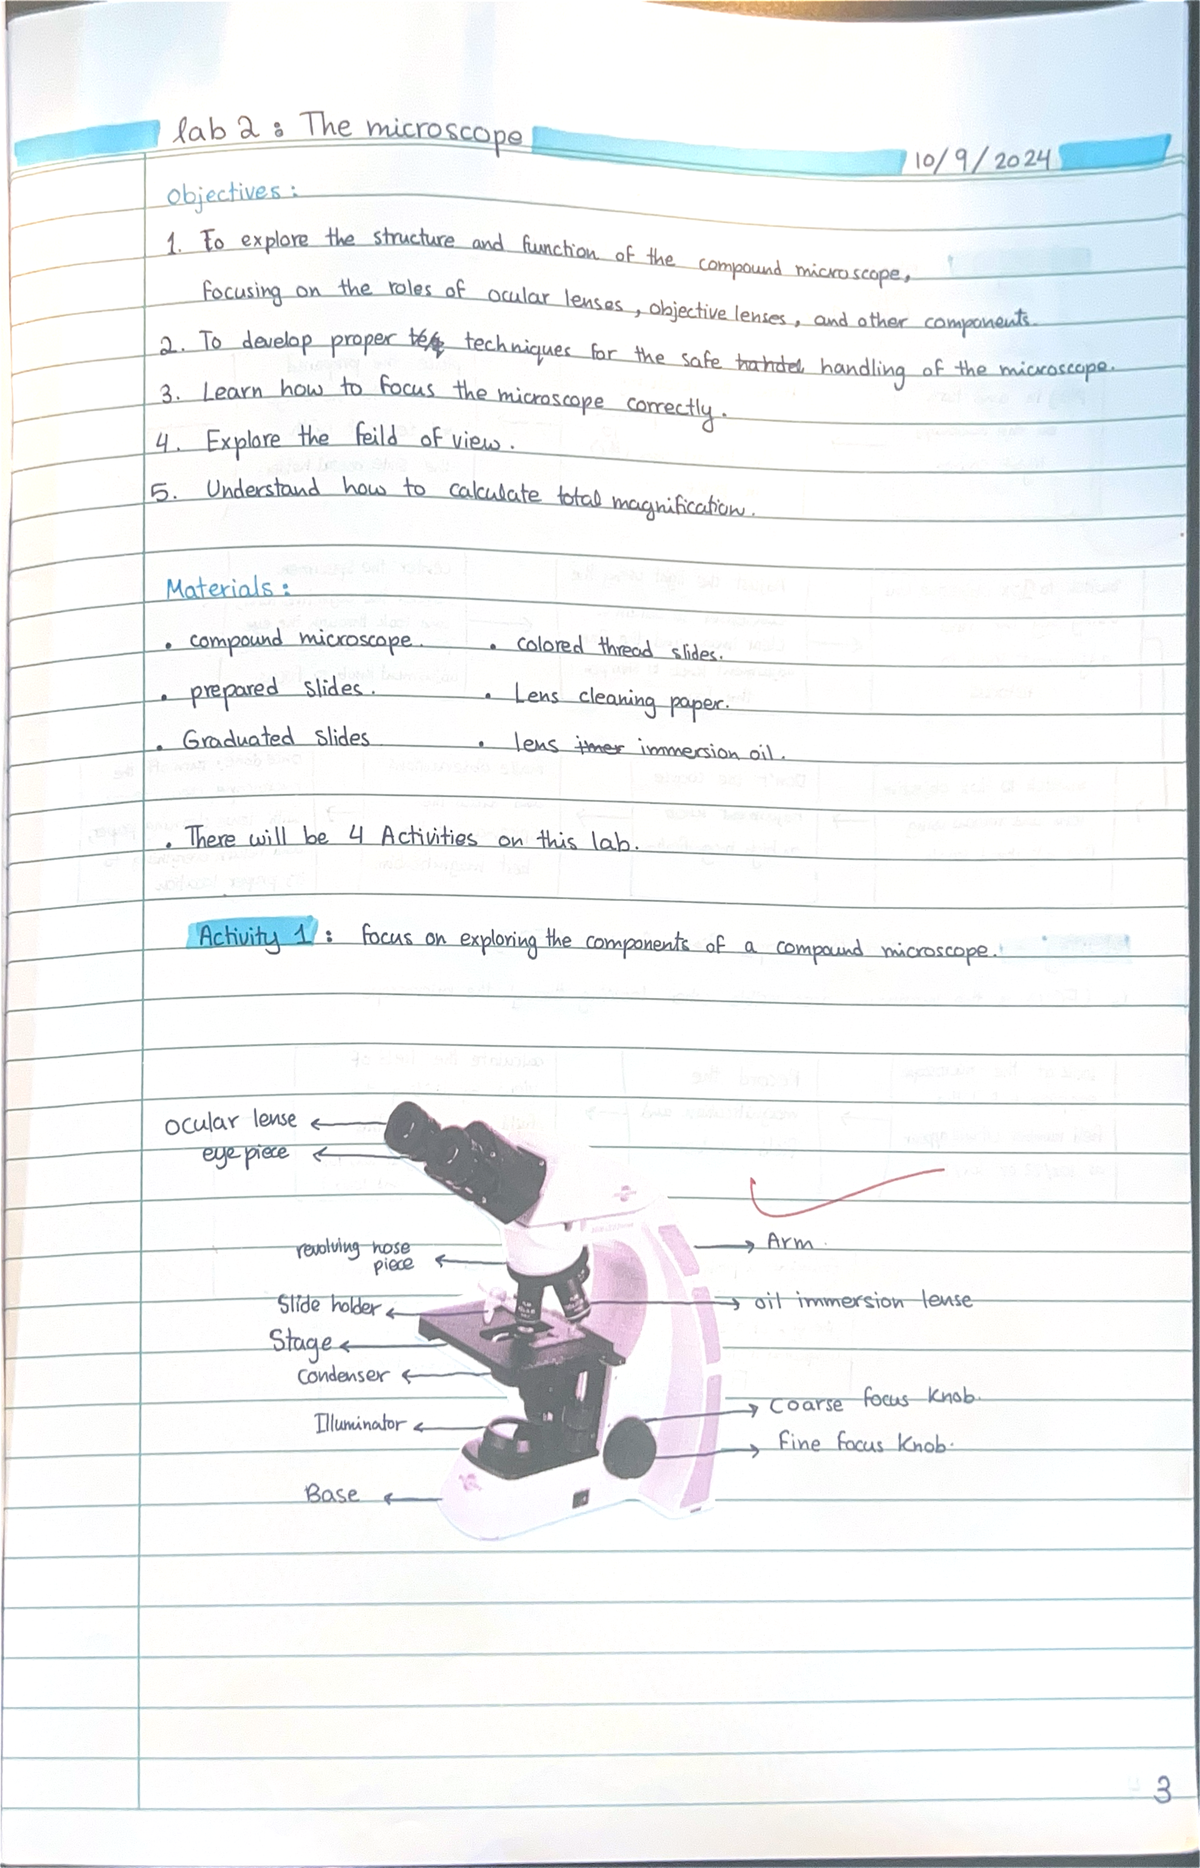 lab 2 : The microscope
10/9/2024
Objectives :
1. To explore the structure and function of the compound microscope,
focusing on the roles of ocular lenses, objective lenses, and other components.
2. To develop proper techniques for the safe handling of the microscope.
3. Learn how to focus the microscope correctly.
4. Explore the feild of view.
5. Understand how to calculate total magnification.
Materials :
• compound microscope. • colored thread slides.
• prepared slides. • Lens cleaning paper.
• Graduated slides • lens immersion oil.
• There will be 4 Activities on this lab.
Activity 1 : focus on exploring the components of a compound microscope.
ocular lense
eye piece
revolving nose
piece
Arm.
Slide holder
oil immersion lense
Stage
condenser
Coarse focus Knob.
Illuminator
fine focus Knob.
Base
3